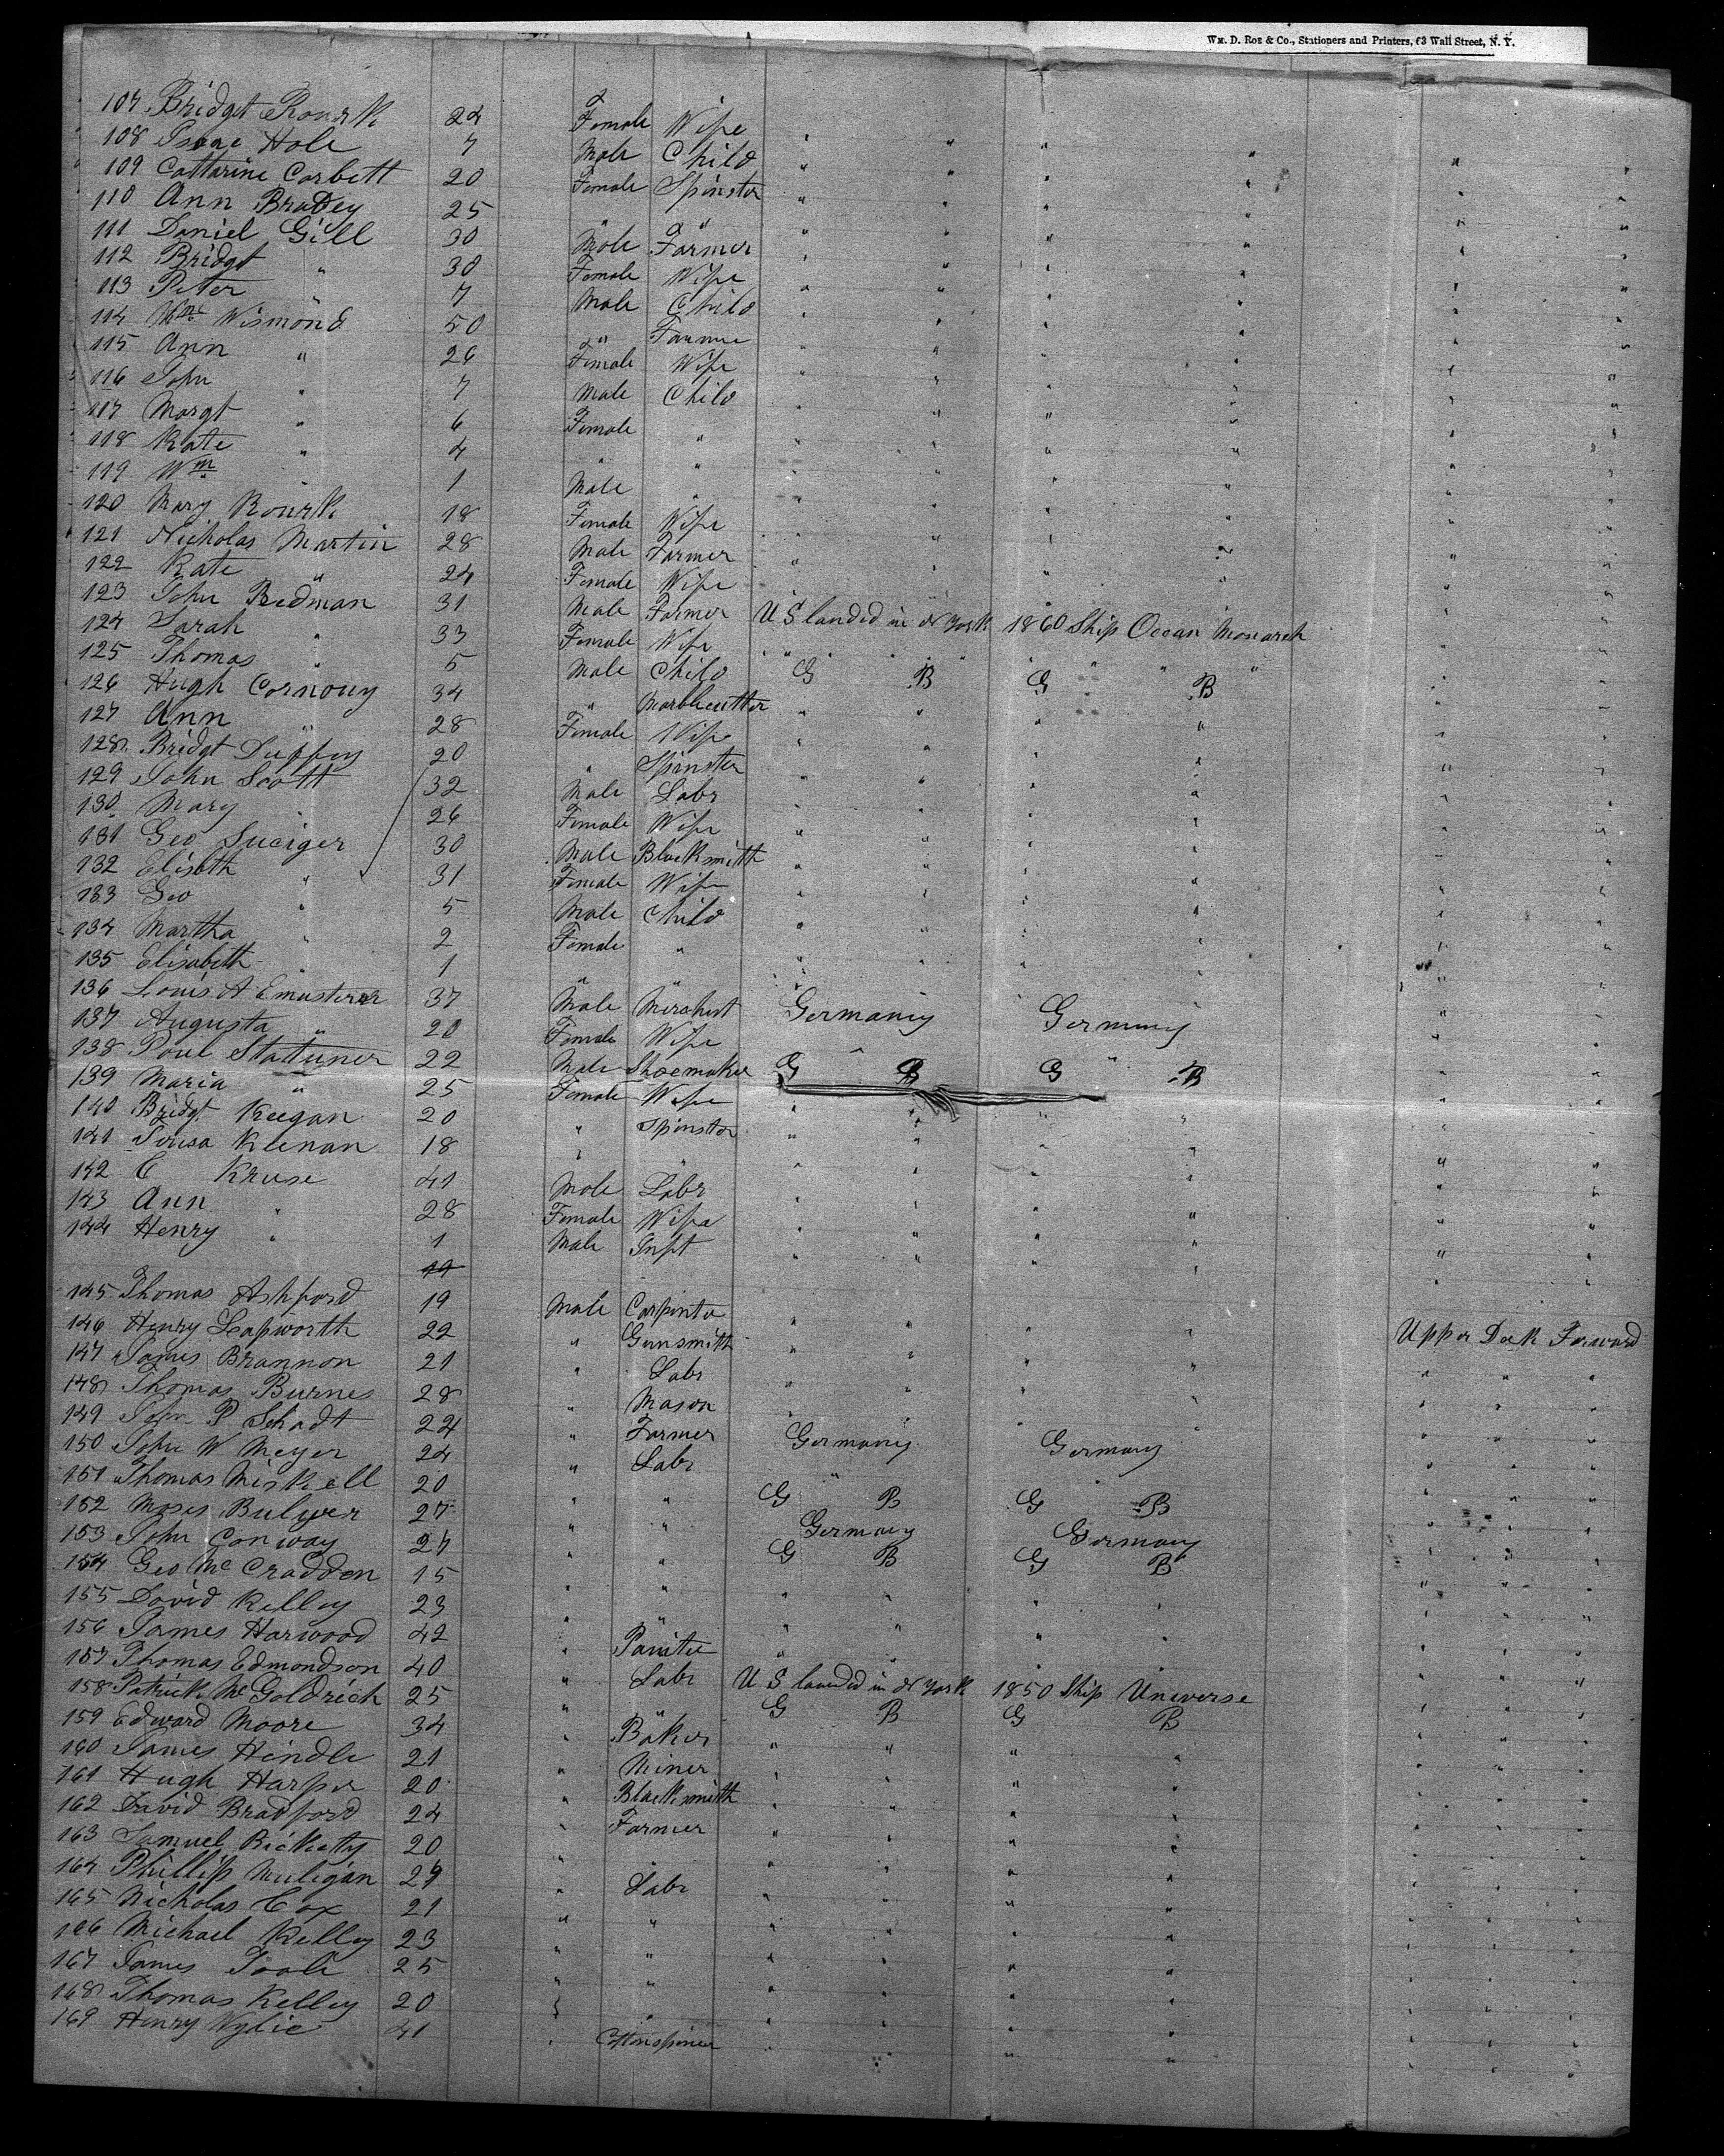 Wm. D. Roe & Co., Stationers and Printers, 63 Wall Street, N. Y.
107 Bridget Rourk 24 Female Wife " " " " " "
108 Isaac Hole 7 Male Child " " " " " "
109 Cattarine Corbett 20 Female Spinster " " " " " "
110 Ann Bradey 25 " " " " " " " "
111 Daniel Gill 30 Male Farmer " " " " " "
112 Bridgt " 30 Female Wife " " " " " "
113 Peter " 7 Male Child " " " " " "
114 Wm Wismond 50 " Farmer " " " " " "
115 Ann " 26 Female Wife " " " " " "
116 John " 7 Male Child " " " " " "
117 Margt " 6 Female " " " " " " "
118 Kate " 4 " " " " " " " "
119 Wm " 1 Male " " " " " " "
120 Mary Rourk 18 Female Wife " " " " " "
121 Nicholas Martin 28 Male Farmer " " " " " "
122 Kate " 24 Female Wife " " " " " "
123 John Redman 31 Male Farmer U S landed in N York 1860 Ship Ocean Monarch " "
124 Sarah " 33 Female Wife " " " " " " " " " "
125 Thomas " 5 Male Child G B G B " "
126 Hugh Cornouy 34 " Marblecutter " " " " " "
127 Ann " 28 Female Wife " " " " " "
128 Bridgt Duffey 20 " Spinster " " " " " "
129 John Scott 32 Male Labr " " " " " "
130 Mary " 26 Female Wife " " " " " "
131 Geo Suciger 30 Male Blacksmith " " " " " "
132 Elisbth " 31 Female Wife " " " " " "
133 Geo " 5 Male Child " " " " " "
134 Martha " 2 Female " " " " " " "
135 Elisabeth 1 " " " " " " " "
136 Louis A Emusterer 37 Male Merchant Germany Germany " "
137 Augusta " 20 Female Wife " " " "
138 Poul Stattuner 22 Male Shoemaker G B G B " "
139 Maria " 25 Female Wife " " " " " "
140 Bridgt Keegan 20 " Spinster " " " " " "
141 Teresa Keenan 18 " " " " " " " "
142 C Kruse 41 Male Labr " " " " " "
143 Ann " 28 Female Wife " " " " " "
144 Henry " 1 Male Inft " " " " " "
19
145 Thomas Ashford 19 Male Carpinter " " " " Upper Deck Forward
146 Henry Lapworth 22 " Gunsmith " " " " " " "
147 James Brannon 21 " Labr " " " " " " "
148 Thomas Burnes 28 " Mason " " " " " " "
149 John P Schadt 24 " Farmer Germany Germany " " "
150 John W Meyer 24 " Labr " " " " "
151 Thomas Miskell 20 " " G B G B " " "
152 Moses Bulwer 27 " " Germany Germany " " "
153 John Conway 27 " " G B G B " " "
154 Geo McCradden 15 " " " " " " " " "
155 David Kelley 23 " " " " " " " " "
156 James Harwood 42 " Painter " " " " " " "
157 Thomas Edmondson 40 " Labr U S landed in N York 1850 Ship Universe " " "
158 Patrick McGoldrich 25 " " G B G B " " "
159 Edward Moore 34 " Baker " " " " " " "
160 James Hindle 21 " Miner " " " " " " "
161 Hugh Harper 20 " Blacksmith " " " " " " "
162 David Bradford 24 " Farmer " " " " " " "
163 Samuel Rickety 20 " " " " " " " " "
164 Phillip Muligan 29 " Labr " " " " " " "
165 Nicholas Cox 21 " " " " " " " " "
166 Michael Kelley 23 " " " " " " " " "
167 James Toole 25 " " " " " " " " "
168 Thomas Kelley 20 " " " " " " " " "
169 Henry Wylie 41 " Cottonspiner " " " " " " "